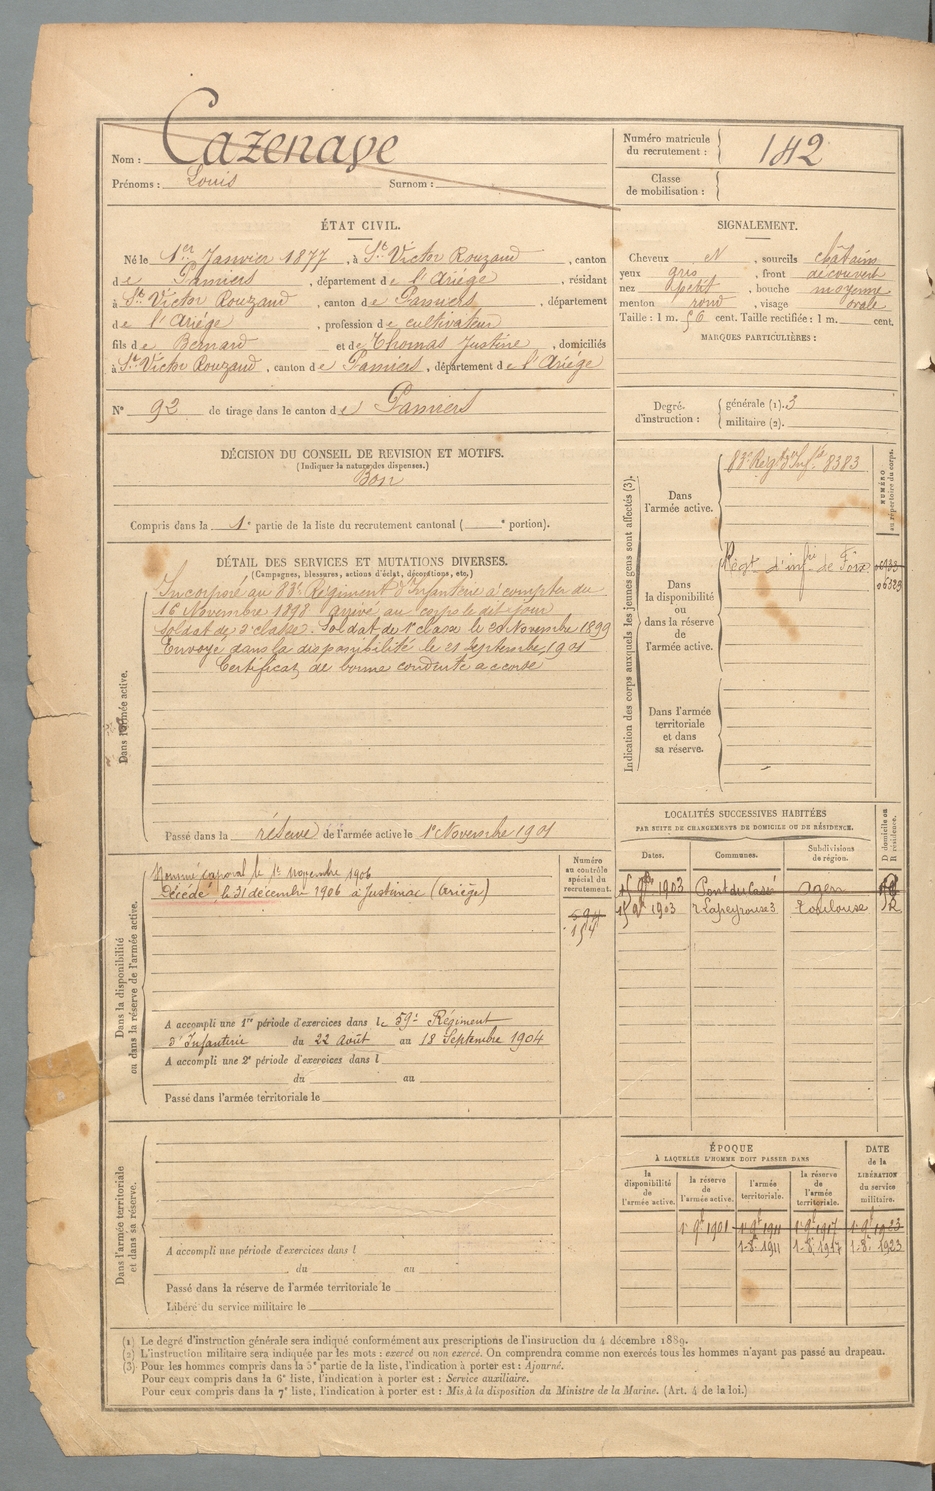 Nom : Cazenave
Prénoms : Louis Surnom :
Numéro matricule du recrutement : 142
Classe de mobilisation :
ÉTAT CIVIL.
Né le 1er Janvier 1877, à St Victor Rouzaud, canton
de Pamiers, département de l'Ariége, résidant
à St Victor Rouzaud, canton de Pamiers, département
de l'Ariége, profession de cultivateur
fils de Bernard et de Thomas Justine, domiciliés
à St Victor Rouzaud, canton de Pamiers, département de l'Ariége
N° 92 de tirage dans le canton de Pamiers
SIGNALEMENT.
Cheveux N, sourcils châtains
yeux gris, front découvert
nez petit, bouche moyenne
menton rond, visage ovale
Taille : 1 m. 56 cent. Taille rectifiée : 1 m. cent.
MARQUES PARTICULIÈRES :
Degré d'instruction : générale (1). 3
militaire (2).
DÉCISION DU CONSEIL DE REVISION ET MOTIFS.
(Indiquer la nature des dispenses.)
Bon
Compris dans la 1e partie de la liste du recrutement cantonal ( e portion).
DÉTAIL DES SERVICES ET MUTATIONS DIVERSES.
(Campagnes, blessures, actions d'éclat, décorations, etc.)
Dans l'armée active.
Incorporé au 83e Régiment d'Infanterie à compter du
16 Novembre 1898 arrivé au corps le dit jour
soldat de 2e classe. Soldat de 1e classe le Novembre 1899
Envoyé dans la disponibilité le 21 Septembre 1901
Certificat de bonne conduite accordé
Passé dans la réserve de l'armée active le 1er Novembre 1901
Indication des corps auxquels les jeunes gens sont affectés (3).
NUMÉRO au répertoire du corps.
Dans l'armée active.
83e Régt d'Infie 8383
Dans la disponibilité ou dans la réserve de l'armée active.
Régt d'infie de Foix
Dans l'armée territoriale et dans sa réserve.
LOCALITÉS SUCCESSIVES HABITÉES
PAR SUITE DE CHANGEMENTS DE DOMICILE OU DE RÉSIDENCE.
Dates. Communes. Subdivisions de région. D domicile ou R résidence.
1903 Agen
1903 Lapeyrouse Toulouse R
Dans la disponibilité ou dans la réserve de l'armée active.
Numéro au contrôle spécial du recrutement.
594
154
Nommé caporal le 1er novembre 1906
Décédé le 31 décembre 1906 à Justiniac (Ariège)
A accompli une 1re période d'exercices dans le 59e Régiment
d'Infanterie du 22 Août au 18 Septembre 1904
A accompli une 2e période d'exercices dans l
du au
Passé dans l'armée territoriale le
Dans l'armée territoriale et dans sa réserve.
A accompli une période d'exercices dans l
du au
Passé dans la réserve de l'armée territoriale le
Libéré du service militaire le
ÉPOQUE
À LAQUELLE L'HOMME DOIT PASSER DANS
la disponibilité de l'armée active. la réserve de l'armée active. l'armée territoriale. la réserve de l'armée territoriale.
DATE de la LIBÉRATION du service militaire.
1er 9bre 1901 1er 9bre 1911 1er 9bre 1917 1er 9bre 1923
1-8- 1911 1-8- 1917 1-8- 1923
(1) Le degré d'instruction générale sera indiqué conformément aux prescriptions de l'instruction du 4 décembre 1889.
(2) L'instruction militaire sera indiquée par les mots : exercé ou non exercé. On comprendra comme non exercés tous les hommes n'ayant pas passé au drapeau.
(3) Pour les hommes compris dans la 5e partie de la liste, l'indication à porter est : Ajourné.
Pour ceux compris dans la 6e liste, l'indication à porter est : Service auxiliaire.
Pour ceux compris dans la 7e liste, l'indication à porter est : Mis à la disposition du Ministre de la Marine. (Art. 4 de la loi.)